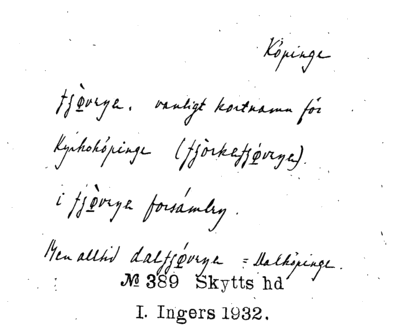 Köpinge
fjø̀vrya. vanligt kortnamn för
Kyrkoköpinge (fjörkefjǿvrya).
i fjø̀vrya forsámlry.
Men alltid dalfjǿvrya = Dalköpinge.
№ 389 Skytts hd
I. Ingers 1932.